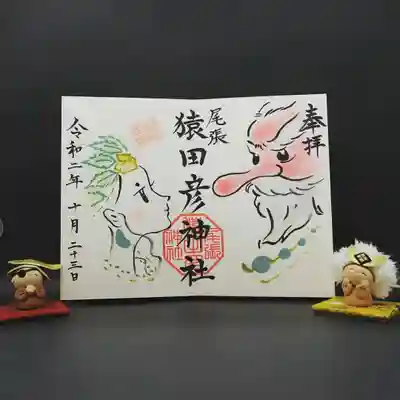 奉拝
尾張
猿田彦神社
令和二年 十月 二十三日